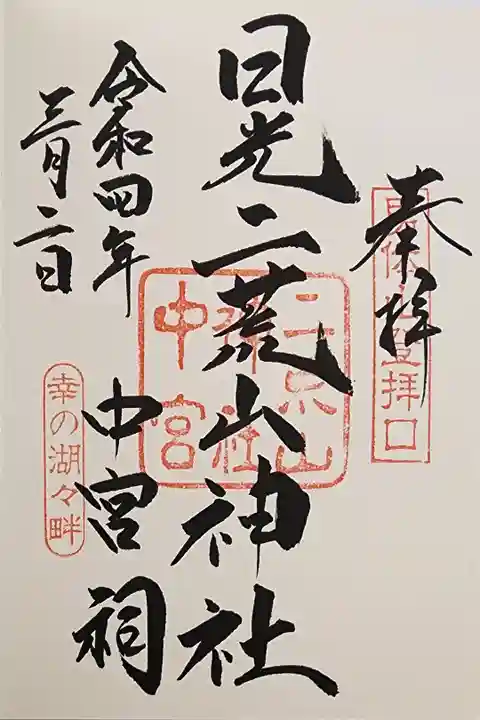 奉拝
男体山登拝口
日光二荒山神社
二荒山
神社
中宮
中宮祠
令和四年
三月二日
幸の湖々畔